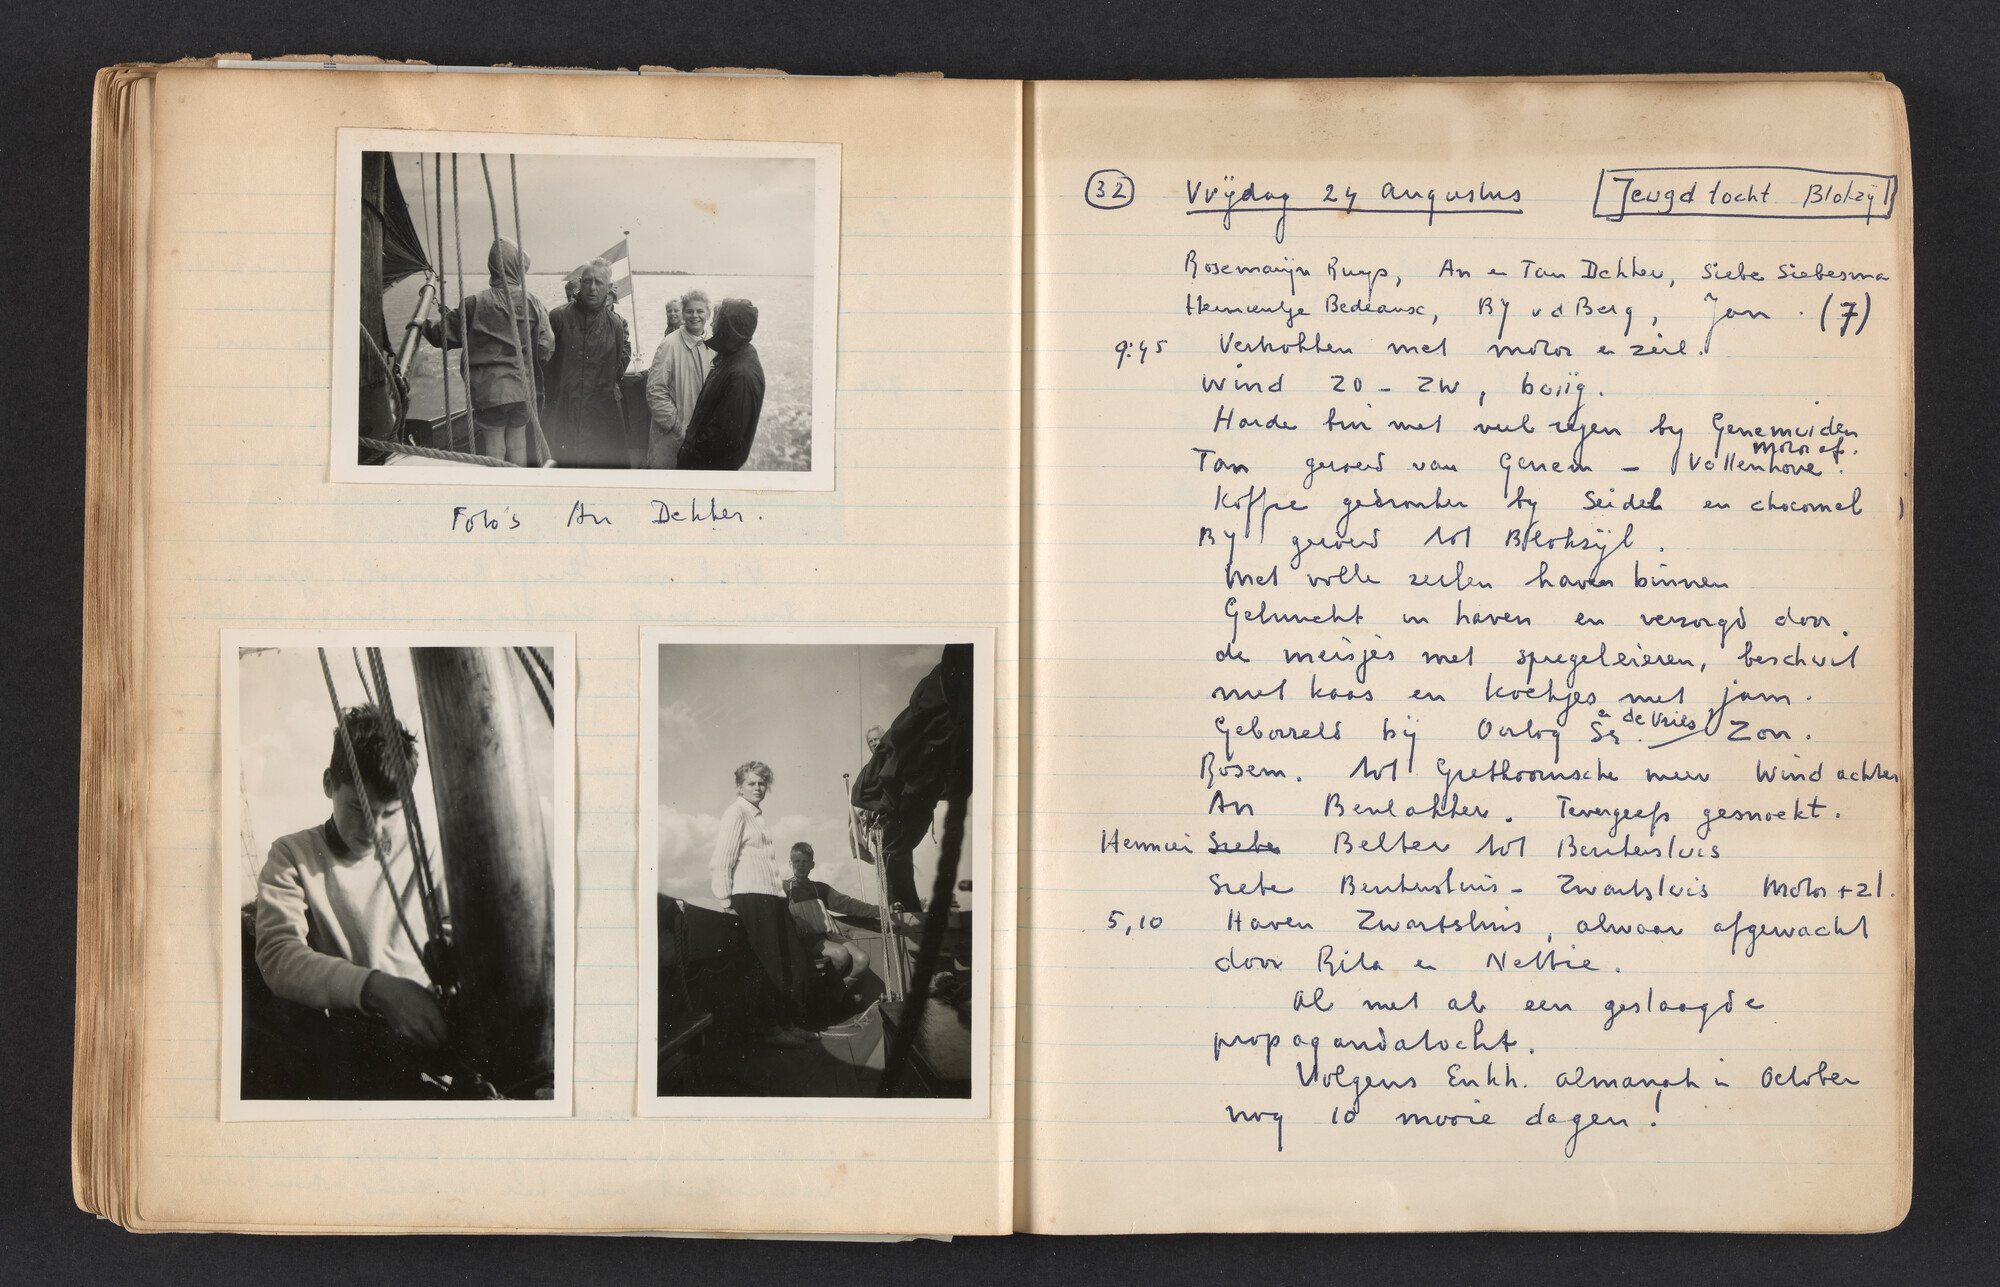 Foto's An Dekker.
32 Vrijdag 24 Augustus Jeugdtocht Blokzijl
Rosemarijn Ruys, An en Tan Dekker, Siebe Siebesma
Bedeaux, By vd Berg, Jan. (7)
9:45 Vertrokken met motor en zeil.
Wind ZO - ZW, buiig.
Harde bui met veel regen by Genemuiden
motor af.
Tan geroerd van Genem - Vollenhove.
Koffie gedronken by Seidel en chocomel
By geroerd tot Blokzijl.
Met volle zeilen haven binnen
Geluncht in haven en verzorgd door
de meisjes met spiegeleieren, beschuit
met kaas en koekjes met jam.
Geborreld bij Oorlog Sr. en de Vries Zon.
Rosem. tot Giethoornsche meer Wind achter
An Beulakker. Tevergeefs gesnoekt.
Hennie Siebe Belter tot Beukersluis
Siebe Beukersluis - Zwartsluis Motor + zl.
5,10 Haven Zwartsluis, alwaar afgewacht
door Rita en Nettie.
Al met al een geslaagde
propagandatocht.
Volgens Enkh. almanak in October
nog 10 mooie dagen!